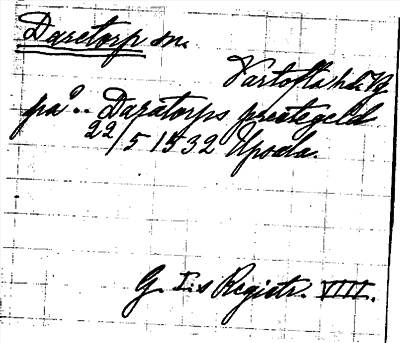 Daretorp sn.
Vartofta hd. Vg.
på .. Daratorps prestegeld
22/5 1532 Upsala.
G. I:s Registr. VIII.